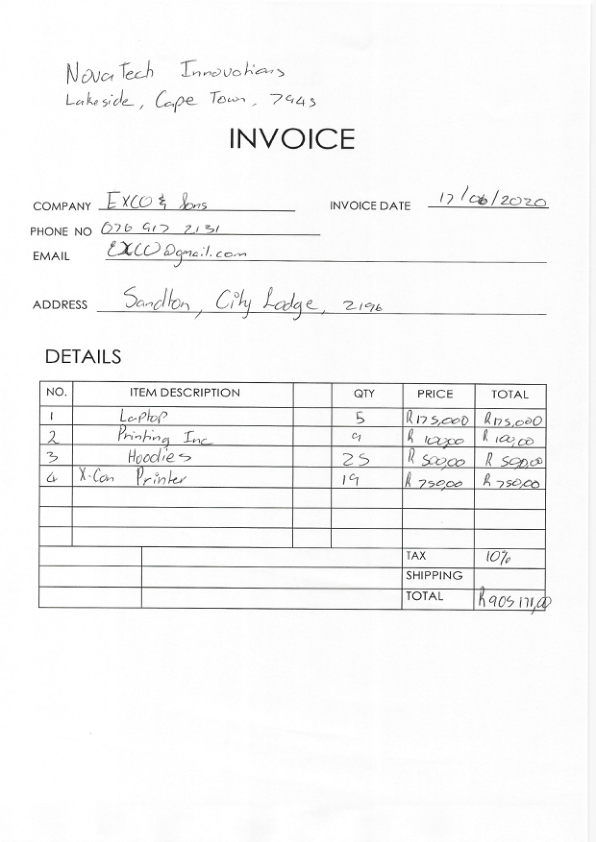 NovaTech Innovations
Lakeside, Cape Town, 7945
INVOICE
COMPANY EXCO & Sons INVOICE DATE 17/06/2020
PHONE NO 076 917 2131
EMAIL EXCO@gmail.com
ADDRESS Sandton, City Lodge, 2196
DETAILS
NO. ITEM DESCRIPTION QTY PRICE TOTAL
1 Laptop 5 R175,000 R175,000
2 Printing Inc 9 R 100,00 R 100,00
3 Hoodies 25 R 500,00 R 500,00
4 X-Can Printer 19 R 750,00 R 750,00
TAX 10%
SHIPPING
TOTAL R905171,00